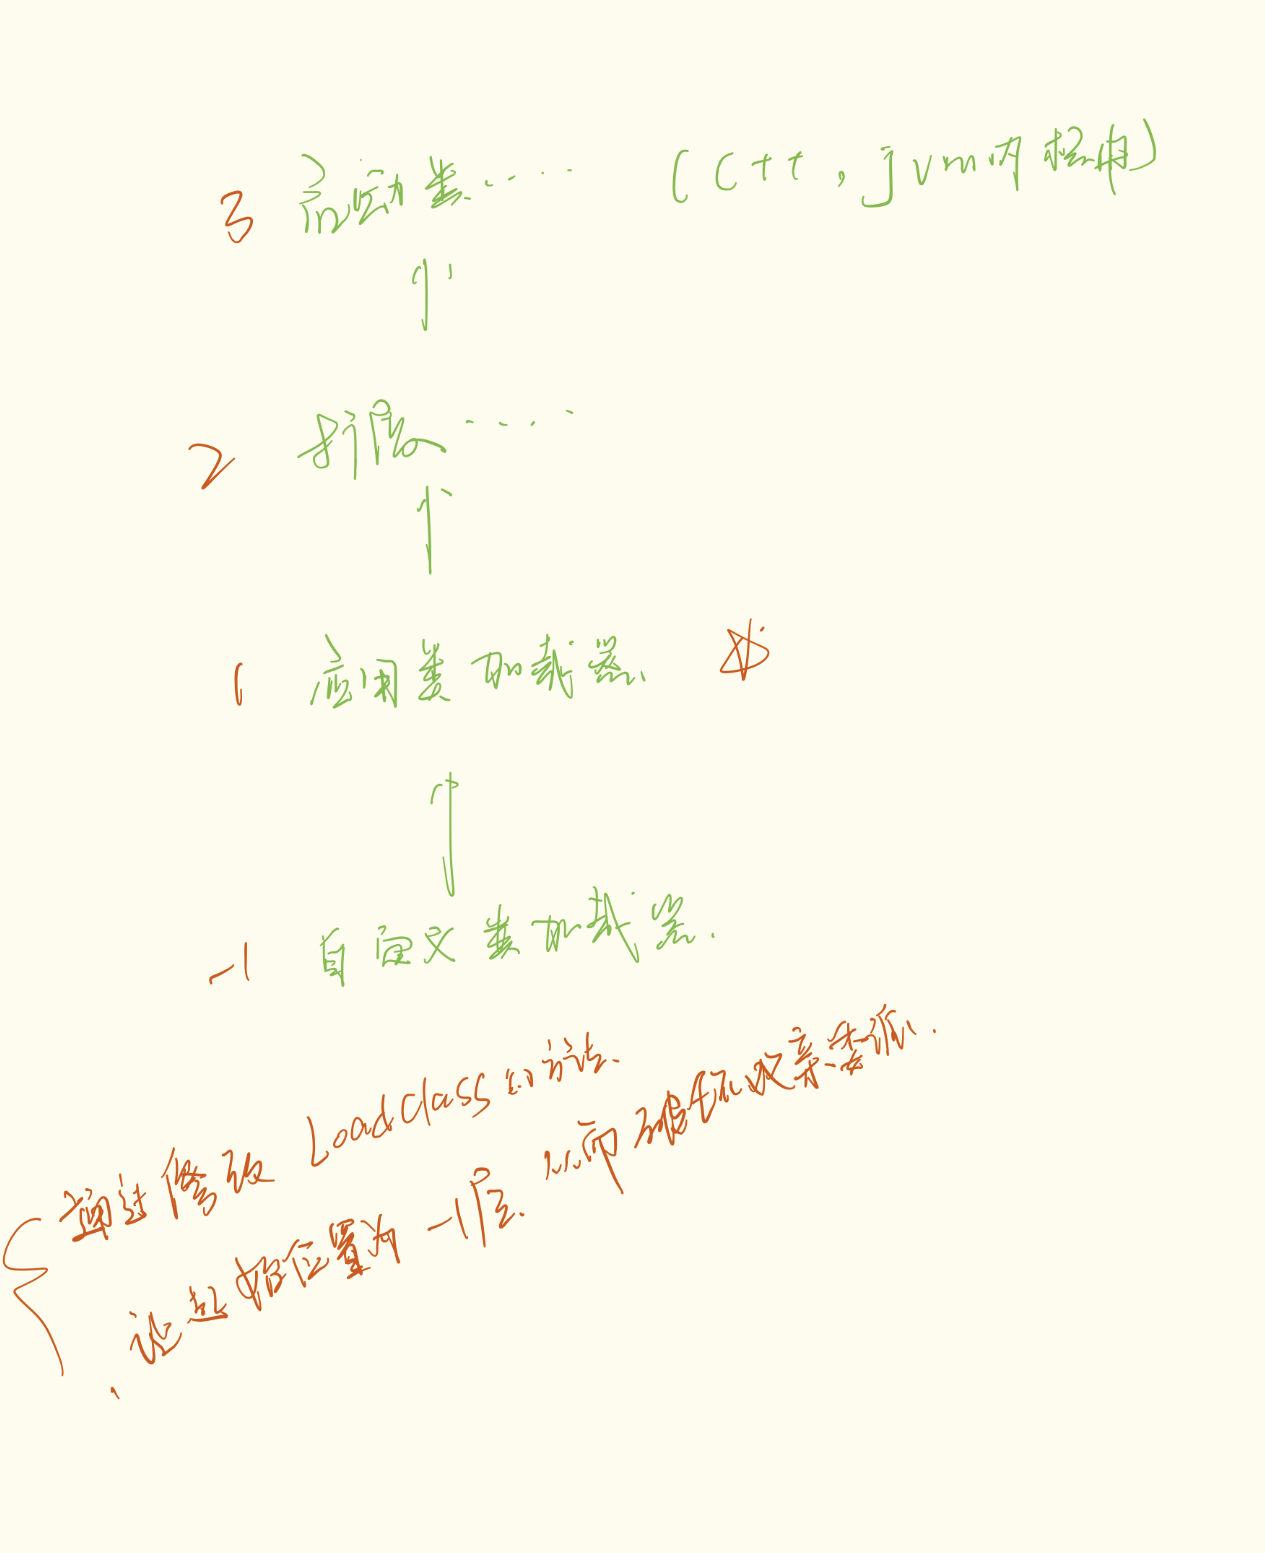 3 启动类····· (C++,jvm内核中)
2 扩展·····
1 应用类加载器
-1 自定义类加载器.
通过修改 Loadclass的方法.
让起始位置为-1层. 从而破坏双亲委派.